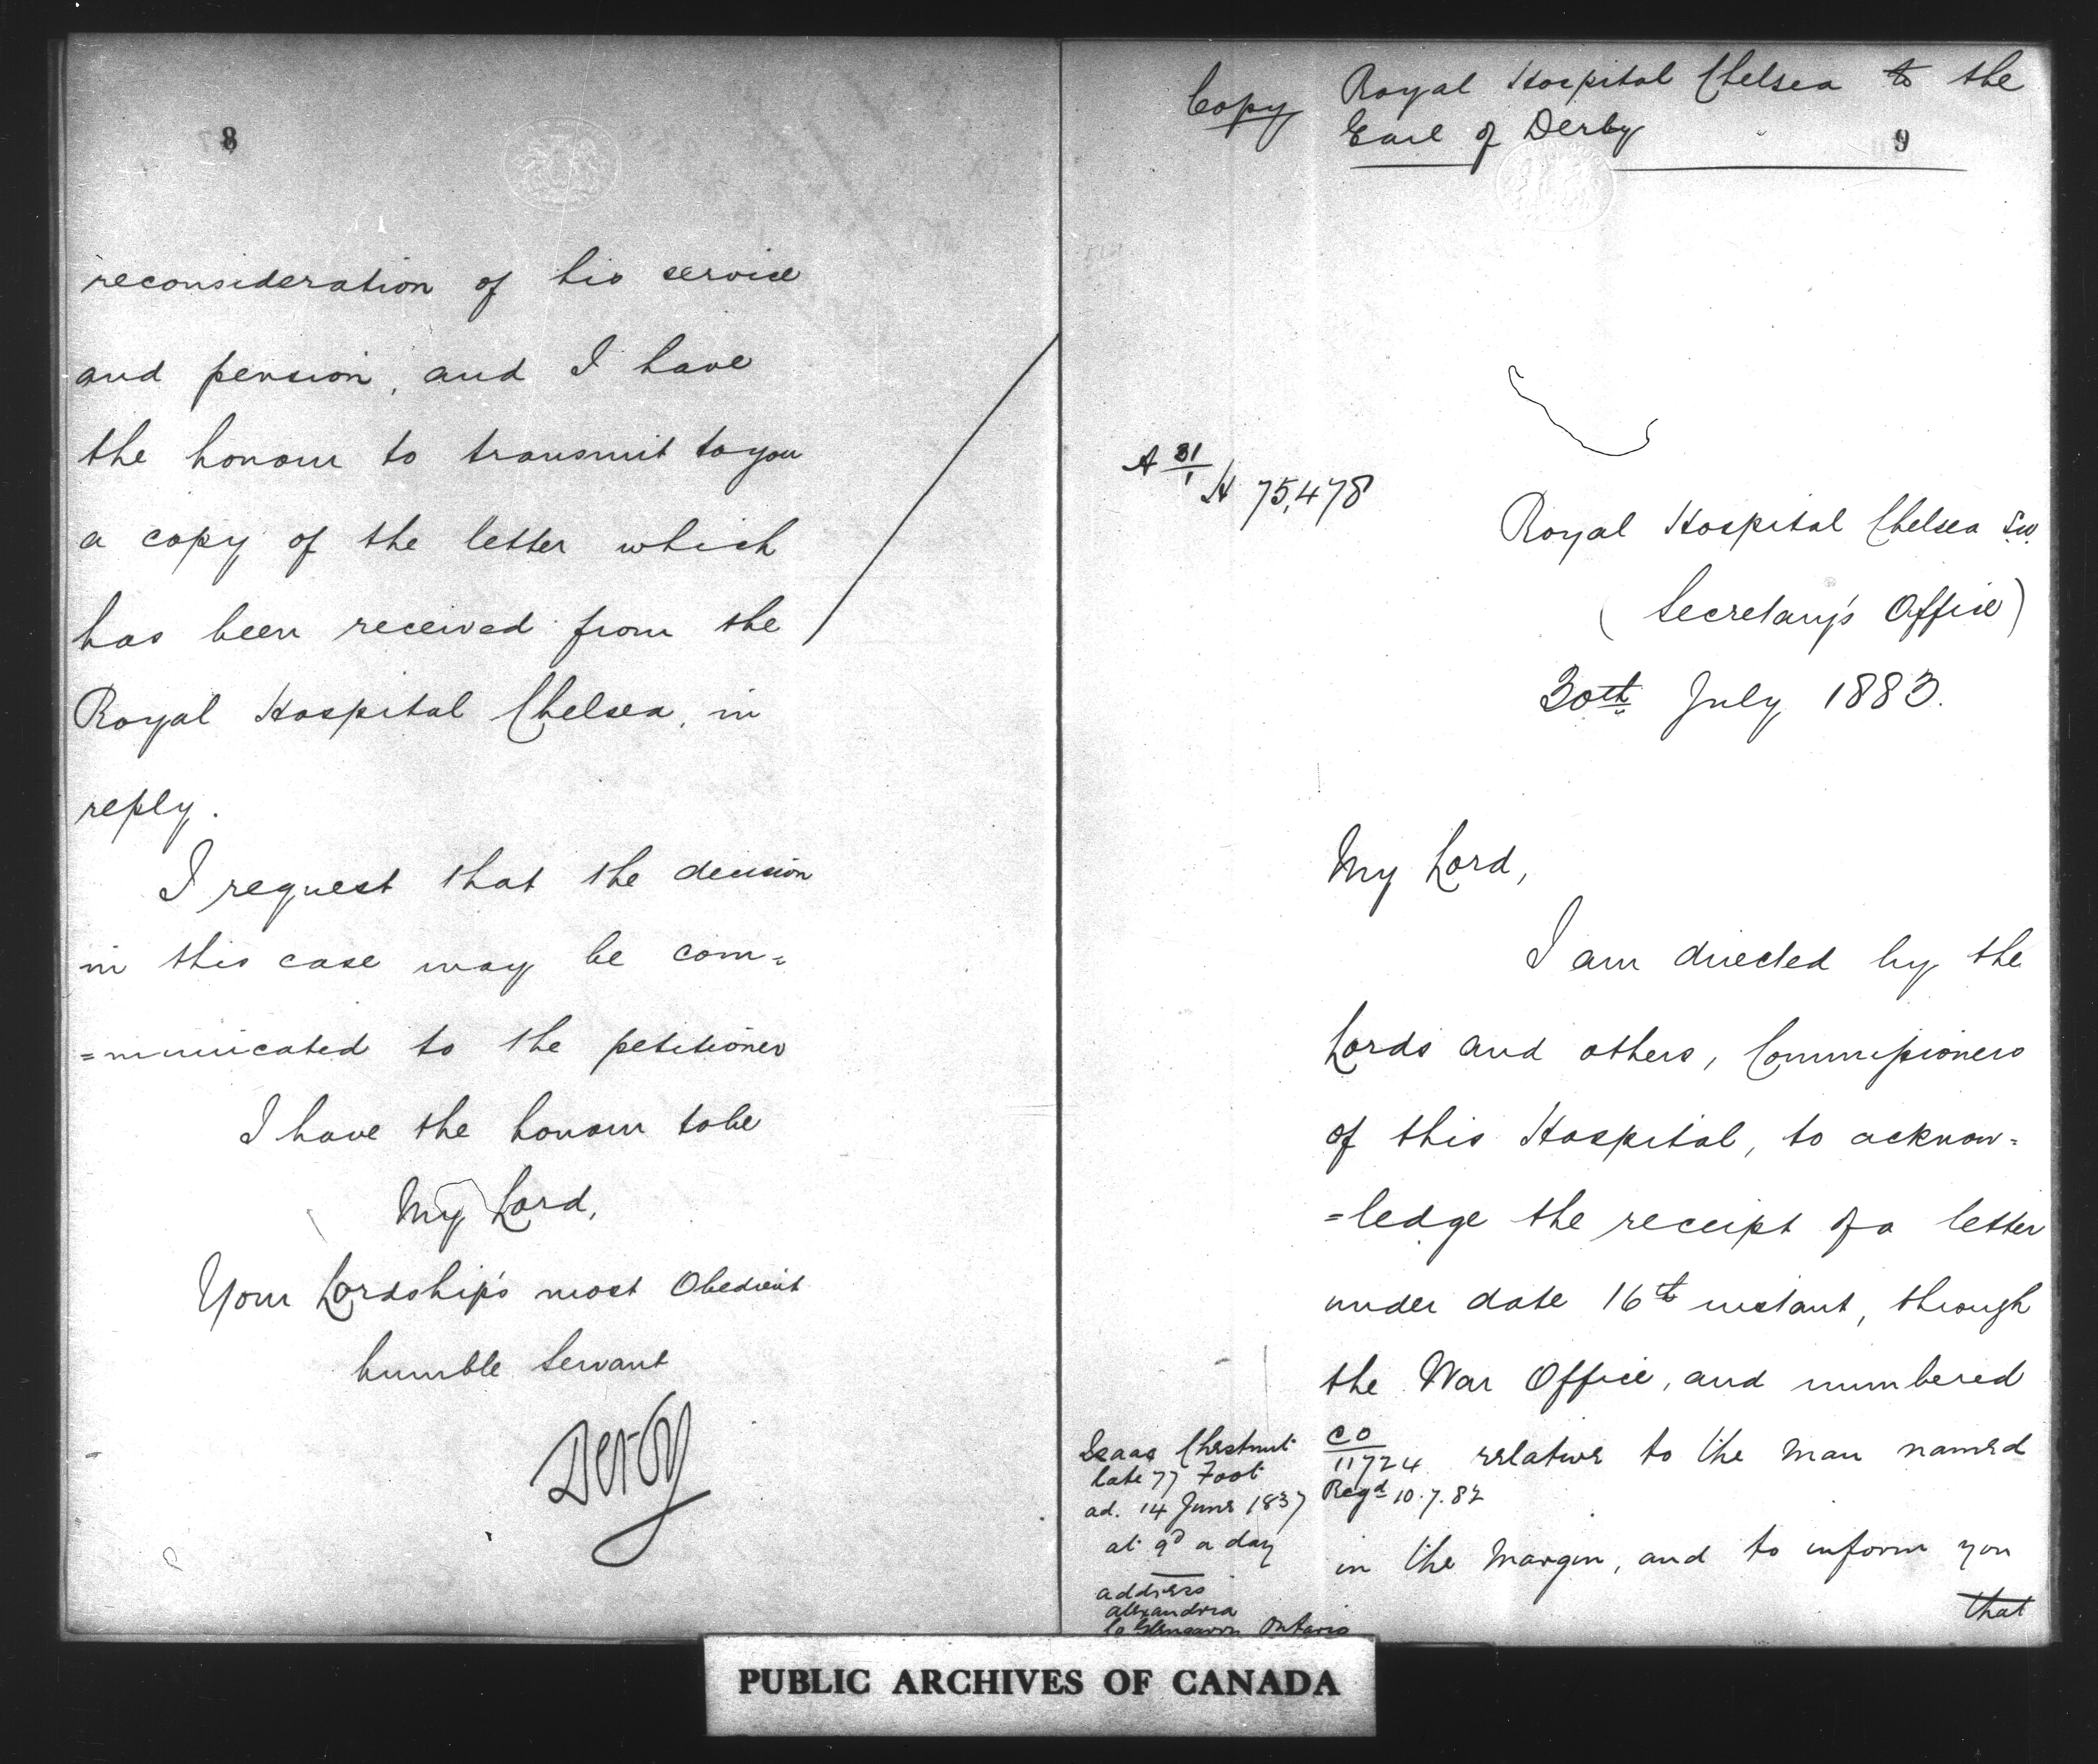 8
reconsideration of his service
and pension, and I have
the honour to transmit to you
a copy of the letter which
has been received from the
Royal Hospital Chelsea, in
reply.
I request that the decision
in this case may be com=
=municated to the petitioner
I have the honour to be
My Lord,
Your Lordship's most Obedient
humble Servant
Derby
Copy Royal Hospital Chelsea to the
Earl of Derby
9
A 31/1 H 75,478
Royal Hospital Chelsea S.W.
(Secretary's Office)
30th July 1883.
My Lord,
I am directed by the
Lords and others, Commissioners
of this Hospital, to acknow=
=ledge the receipt of a letter
under date 16th instant, through
the War Office, and numbered
CO/11724 relative to the man named
Regd 10.7.82
in the Margin, and to inform you
that
Isaac Chestnut
late 77 Foot
ad. 14 June 1837
at 9d a day
address
Alexandria
Co Glengarry Ontario
PUBLIC ARCHIVES OF CANADA